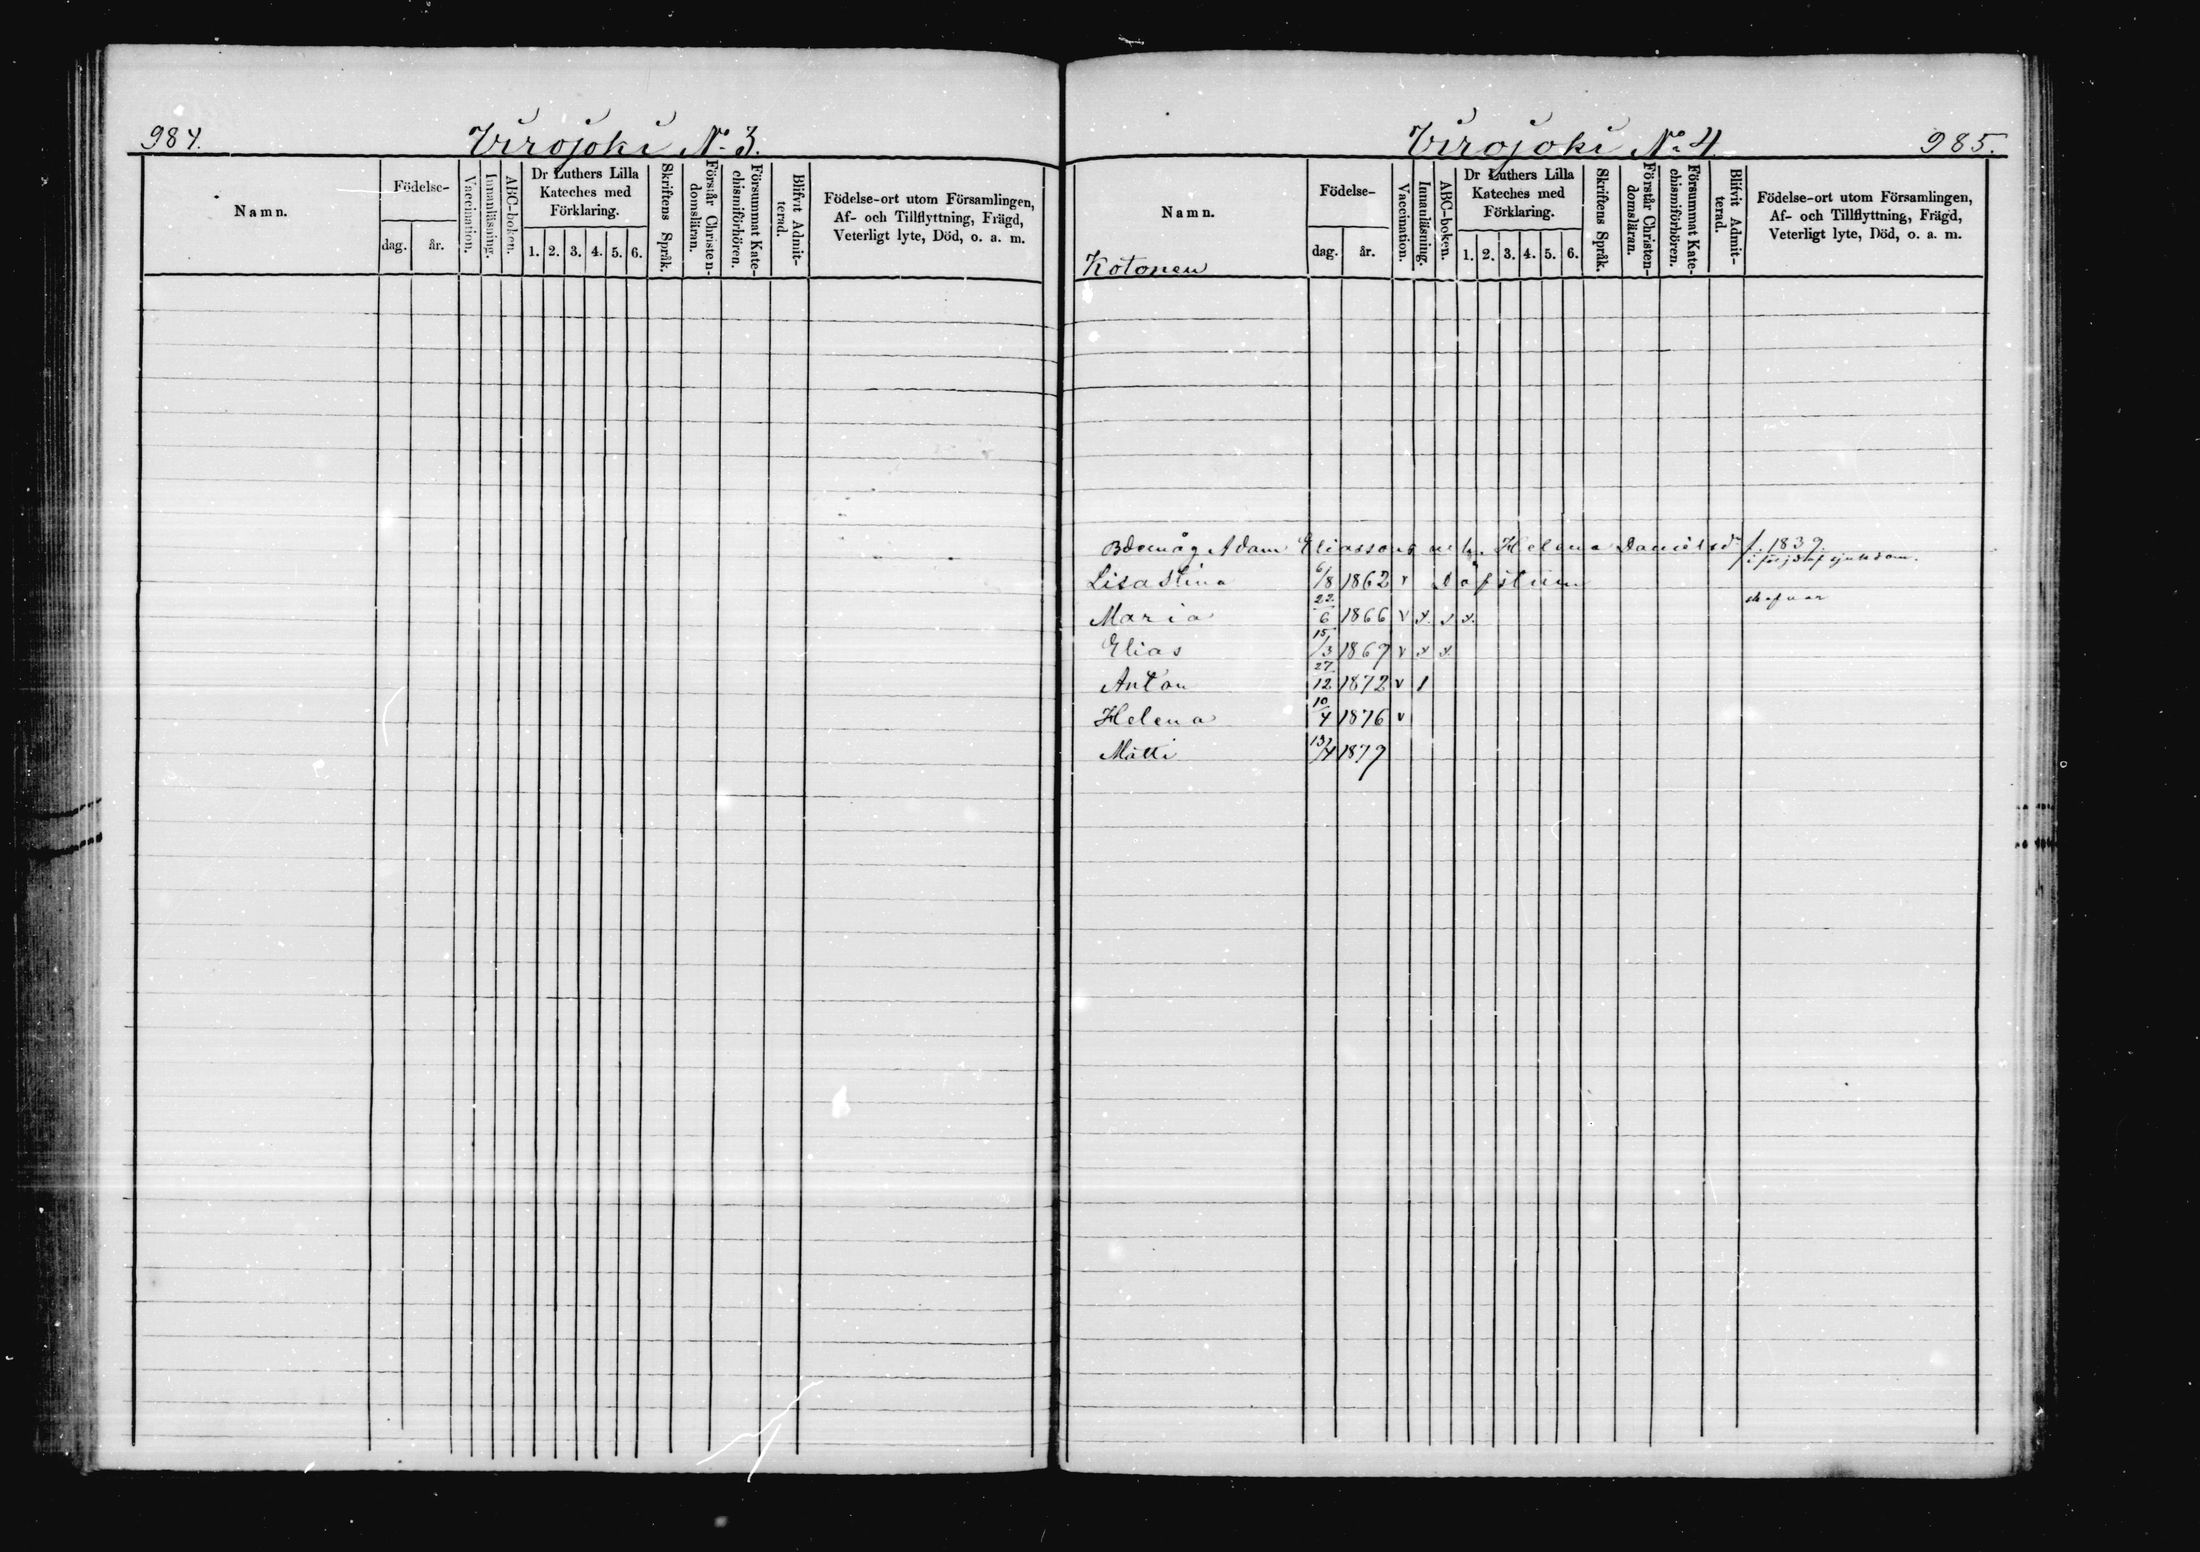 984.
Virojoki No 3.
Namn.
Födelse-
dag.
år.
Vaccination.
Innanläsning.
ABC-boken.
Dr Luthers Lilla
Kateches med
Förklaring.
1. 2. 3. 4. 5. 6.
Skriftens Språk.
Förstår Christen-
domsläran.
Försummat Kate-
chismiförhören.
Blifvit Admit-
terad.
Födelse-ort utom Församlingen,
Af- och Tillflyttning, Frägd,
Veterligt lyte, Död, o. a. m.
Virojoki No 4
985.
Namn.
Kotonen
Födelse-
dag.
år.
Vaccination.
Innanläsning.
ABC-boken.
Dr Luthers Lilla
Kateches med
Förklaring.
1. 2. 3. 4. 5. 6.
Skriftens Språk.
Förstår Christen-
domsläran.
Försummat Kate-
chismiförhören.
Blifvit Admit-
terad.
Födelse-ort utom Församlingen,
Af- och Tillflyttning, Frägd,
Veterligt lyte, Död, o. a. m.
Adam Eliassons Helena Danielsdr f. 1839.
Lisa Stina 6/8 1862 v Döfstum
Maria 22/6 1866 v x. x x.
Elias 15/3 1869 v x x
Anton 27/12 1872 v 1
Helena 10/4 1876 v
Matti 13/4 1879